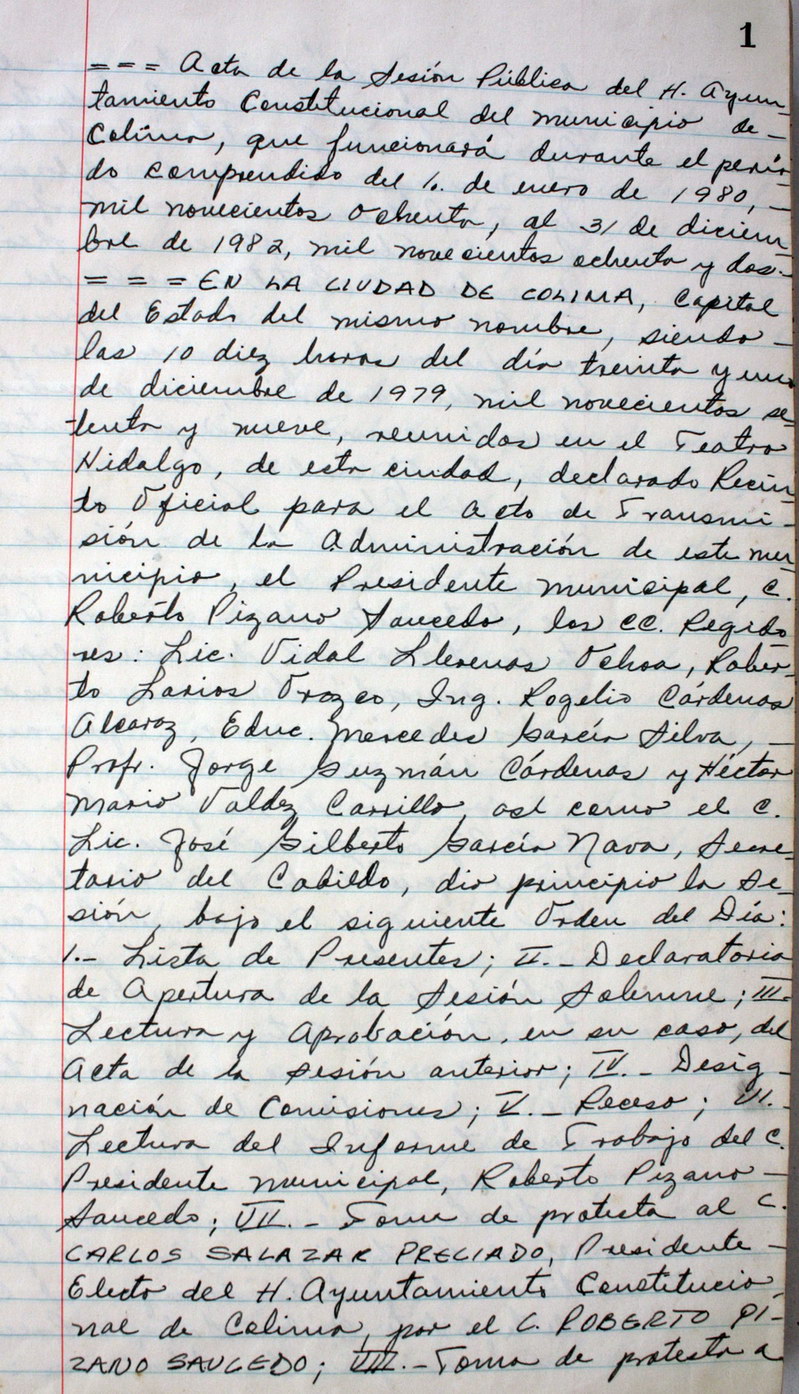 1
= = = Acta de la Sesión Pública del H. Ayun-
tamiento Constitucional del municipio de -
Colima, que funcionará durante el perío-
do comprendido del 1o. de enero de 1980, -
mil novecientos ochenta, al 31 de diciem-
bre de 1982, mil novecientos ochenta y dos.-
= = = EN LA CIUDAD DE COLIMA, Capital
del Estado del mismo nombre, siendo -
las 10 diez horas del día treinta y uno
de diciembre de 1979, mil novecientos se-
tenta y nueve, reunidos en el Teatro
Hidalgo, de esta ciudad, declarado Recin-
to Oficial para el acto de Transmi-
sión de la Administración de este mu-
nicipio, el Presidente Municipal, C.
Roberto Pizano Saucedo, los CC. Regido
res: Lic. Vidal Llerenas Ochoa, Rober-
to Larios Orozco, Ing. Rogelio Cárdenas
Alcaraz, Educ. Mercedes García Silva, -
Profr. Jorge Guzmán Cárdenas y Héctor
Mario Valdez Carrillo, así como el C.
Lic. José Gilberto García Nava, Secre-
tario del Cabildo, dio principio la Se-
sión, bajo el siguiente Orden del Día:
1.- Lista de Presentes; II.- Declaratoria
de Apertura de la Sesión Solemne; III.-
Lectura y Aprobación, en su caso, del
Acta de la sesión anterior; IV.- Desig-
nación de Comisiones; V.- Receso; VI.-
Lectura del Informe de Trabajo del C.
Presidente Municipal, Roberto Pizano -
Saucedo; VII.- Toma de protesta al C.
CARLOS SALAZAR PRECIADO, Presidente -
Electo del H. Ayuntamiento Constitucio-
nal de Colima, por el C. ROBERTO PI-
ZANO SAUCEDO; VIII.- Toma de protesta a